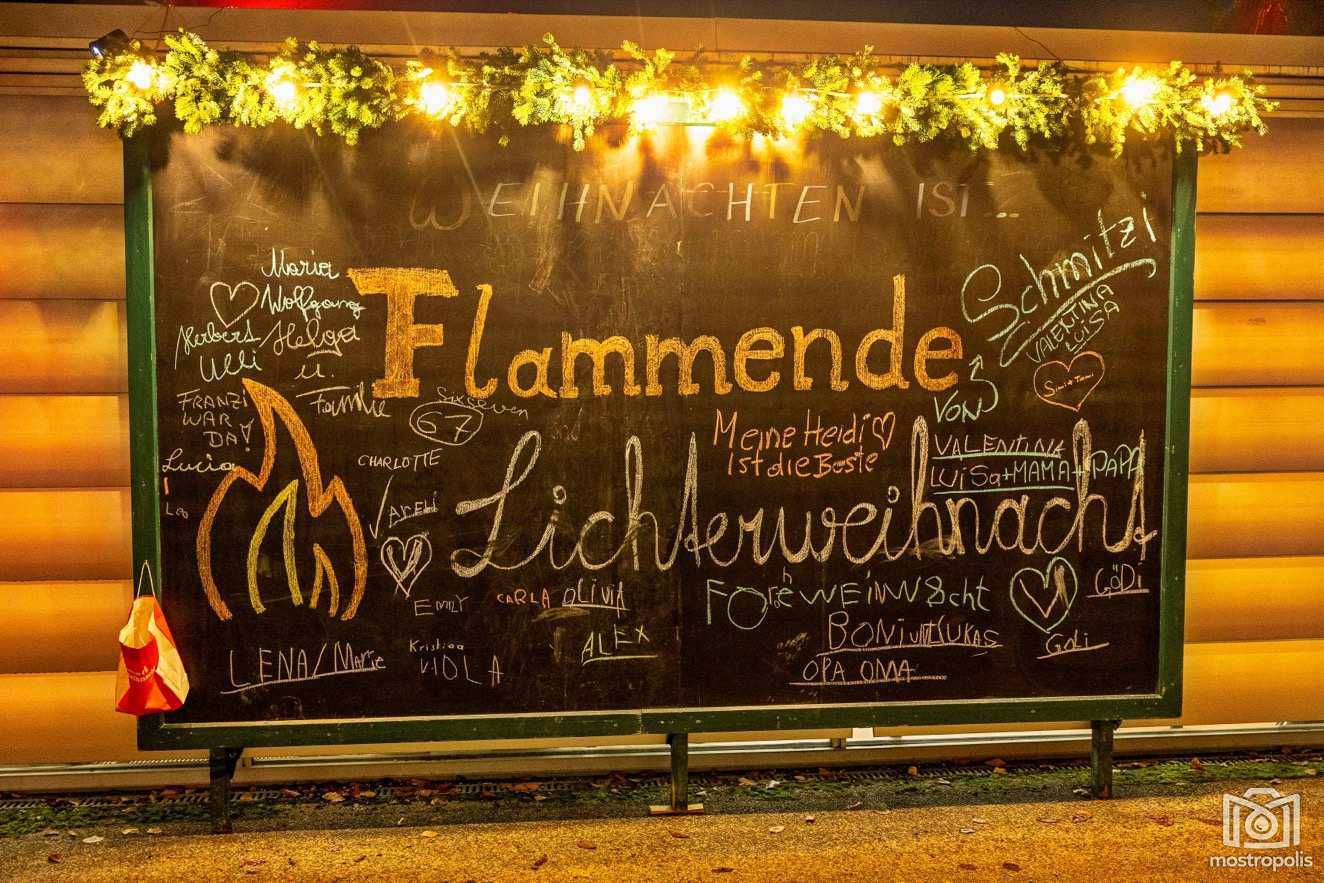 WEIHNACHTEN IST ...
Maria
Wolfgang
Herbert Helga
Ulli
u.
Familie
Flammende
Schmitzi
VALENTINA
LUISA
VON
FRANZI
WAR
DA!
Lucia
sixseven
67
Meine Heidi
ist die Beste
VALENTINA
LUISA+MAMA+PAPA
CHARLOTTE
Lichterweihnacht
EMILY
CARLA OLIVIA
GÖDI
BONI und LUKAS
ALEX
Goli
LENA/Marie
Kristina
VIOLA
OPA OMA
mostropolis